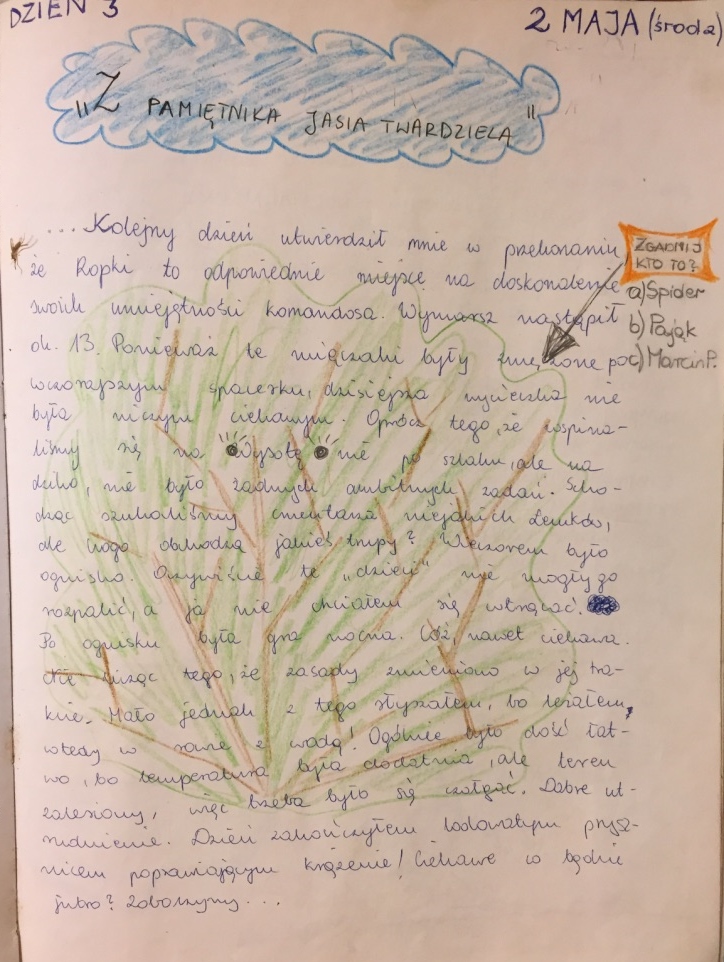 DZIEŃ 3
2 MAJA (środa)
"Z PAMIĘTNIKA JASIA TWARDZIELA"
...Kolejny dzień utwierdził mnie w przekonaniu
że Ropki to odpowiednie miejsce na doskonalenie
swoich umiejętności komandosa. Wymarsz nastąpił
ok. 13. Ponieważ te mięczaki były zmęczone po
wczorajszym spacerku, dzisiejsza wycieczka nie
była niczym ciekawym. Oprócz tego, że wspina-
liśmy się na Wysotę nie po szlaku, ale na
dziko, nie było żadnych ambitnych zadań. Scho-
dząc szukaliśmy cmentarza niejakich Łemków,
ale kogo obchodzą jakieś trupy? Wieczorem było
ognisko. Oczywiście te "dzieci" nie mogły go
rozpalić, a ja nie chciałem się wtrącać.
Po ognisku była gra nocna. Cóż, nawet ciekawa.
Nie licząc tego, że zasady zmieniono w jej tra-
kcie. Mało jednak z tego słyszałem, bo leżałem,
wtedy w rowie z wodą! Ogólnie było dość łat-
wo, bo temperatura była dodatnia, ale teren
zalesiony, więc trzeba było się czołgać. Dobre ut-
rudnienie. Dzień zakończyłem lodowatym prysz-
nicem poprawiającym krążenie! Ciekawe co będzie
jutro? Zobaczymy...
ZGADNIJ
KTO TO?
a) Spider
b) Pająk
c) Marcin P.